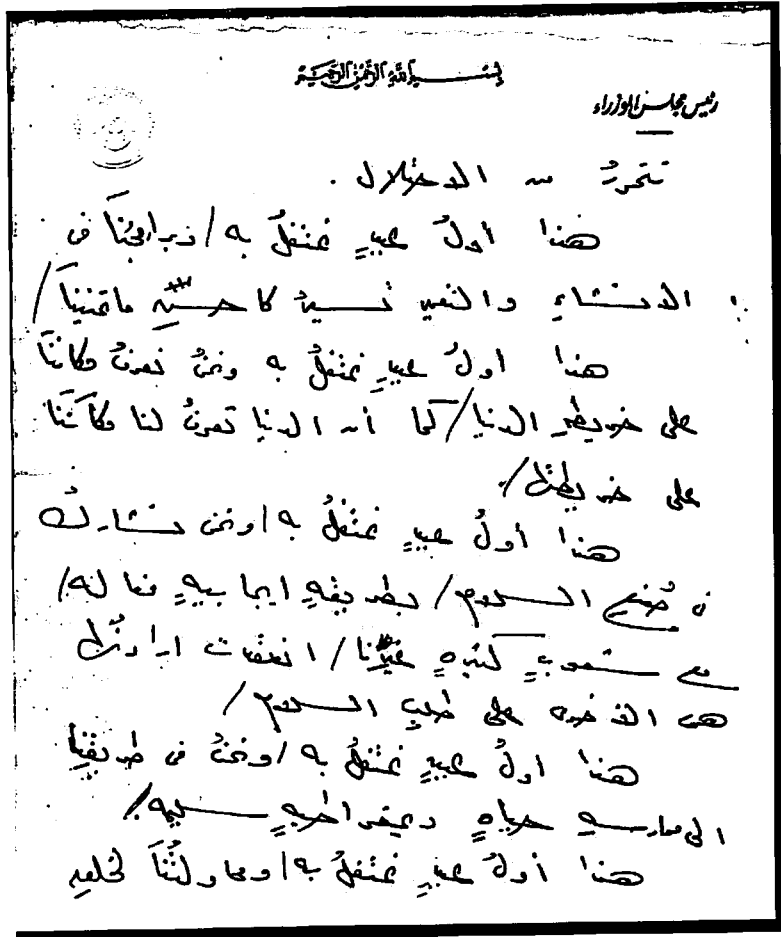 بسم الله الرحمن الرحيم
رئيس مجلس الوزراء
تتحررُ من الاحتلال .
هذا أولُ عيدٍ نحتفلُ به / وبرامجُنا فى
الانشاءِ والتعمير تسيرُ كأحسنِ ما تمنينا /
هذا أولُ عيدٍ نحتفلُ به ونحنُ نعرفُ مكاننا
على خريطةِ الدنيا / كما أن الدنيا تعرفُ لنا مكانَنا
على خريطتها /
هذا أولُ عيدٍ نحتفلُ به / ونحن نشاركُ
فى صُنعِ السلام / بطريقةٍ ايجابيةٍ فعالة /
مع شعوبٍ كثيرةٍ غيرِنا / انعقدت ارادتُها
هى الاخرى على طلبِ السلام /
هذا اولُ عيدٍ نحتفلُ به / ونحنُ فى طريقِنا
الى ممارسةِ حياةٍ ديمقراطيةٍ سليمة /
هذا أولُ عيدٍ نحتفلُ به / ومحاولتُنا لخلقِ